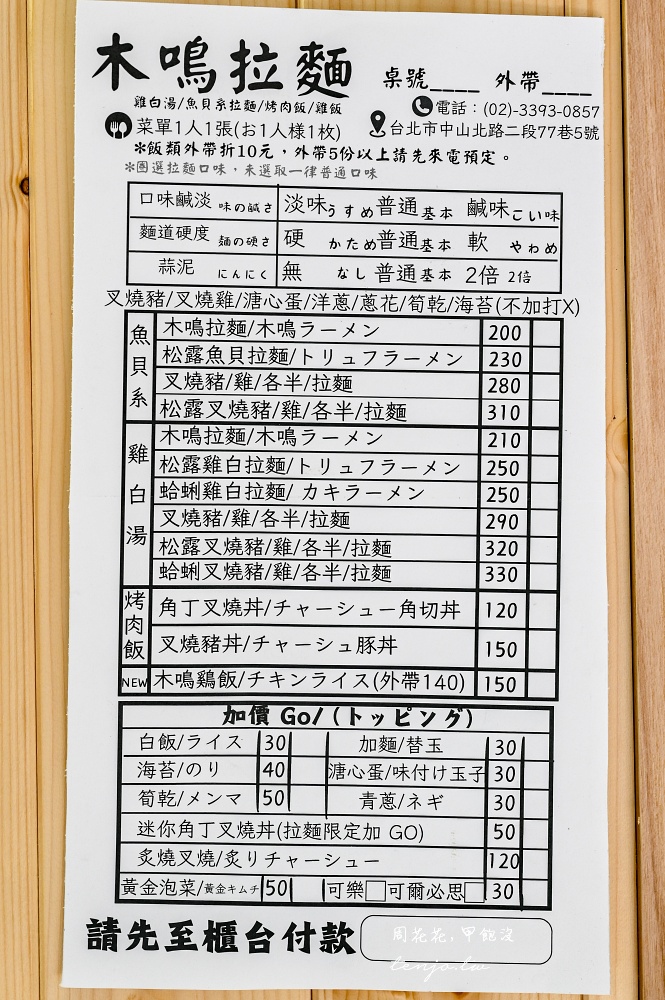 木鳴拉麵 桌號____ 外帶____
雞白湯/魚貝系拉麵/烤肉飯/雞飯 電話：(02)-3393-0857
菜單1人1張(お1人様1枚) 台北市中山北路二段77巷5號
*飯類外帶折10元，外帶5份以上請先來電預定。
*圈選拉麵口味，未選取一律普通口味
口味鹹淡 味の鹹さ 淡味うすめ 普通基本 鹹味こい味
麵道硬度 麺の硬さ 硬 かため 普通基本 軟 やわめ
蒜泥 にんにく 無 なし 普通基本 2倍 2倍
叉燒豬/叉燒雞/溏心蛋/洋蔥/蔥花/筍乾/海苔(不加打X)
魚貝系
木鳴拉麵/木鳴ラーメン 200
松露魚貝拉麵/トリュフラーメン 230
叉燒豬/雞/各半/拉麵 280
松露叉燒豬/雞/各半/拉麵 310
雞白湯
木鳴拉麵/木鳴ラーメン 210
松露雞白拉麵/トリュフラーメン 250
蛤蜊雞白拉麵/ カキラーメン 250
叉燒豬/雞/各半/拉麵 290
松露叉燒豬/雞/各半/拉麵 320
蛤蜊叉燒豬/雞/各半/拉麵 330
烤肉飯
角丁叉燒丼/チャーシュー角切丼 120
叉燒豬丼/チャーシュ豚丼 150
NEW 木鳴鷄飯/チキンライス(外帶140) 150
加價 Go/ (トッピング)
白飯/ライス 30 加麵/替玉 30
海苔/のり 40 溏心蛋/味付け玉子 30
筍乾/メンマ 50 青蔥/ネギ 30
迷你角丁叉燒丼(拉麵限定加 GO) 50
炙燒叉燒/炙りチャーシュー 120
黃金泡菜/黃金キムチ 50 可樂□可爾必思□ 30
請先至櫃台付款
周花花，甲飽沒
tenjo.tw